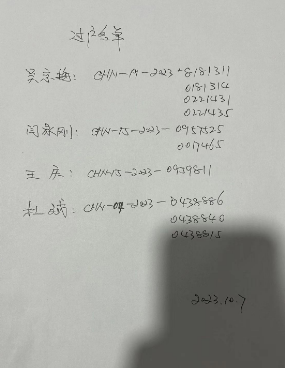 过户名单
吴京梅: CHN-19-2023-8181311
0181314
0221431
0221435
闫永刚: CHN-15-2023-0957525
0017465
王庆: CHN-15-2023-0939811
杜斌: CHN-04-2023-0438886
0438840
0438815
2023.10.7